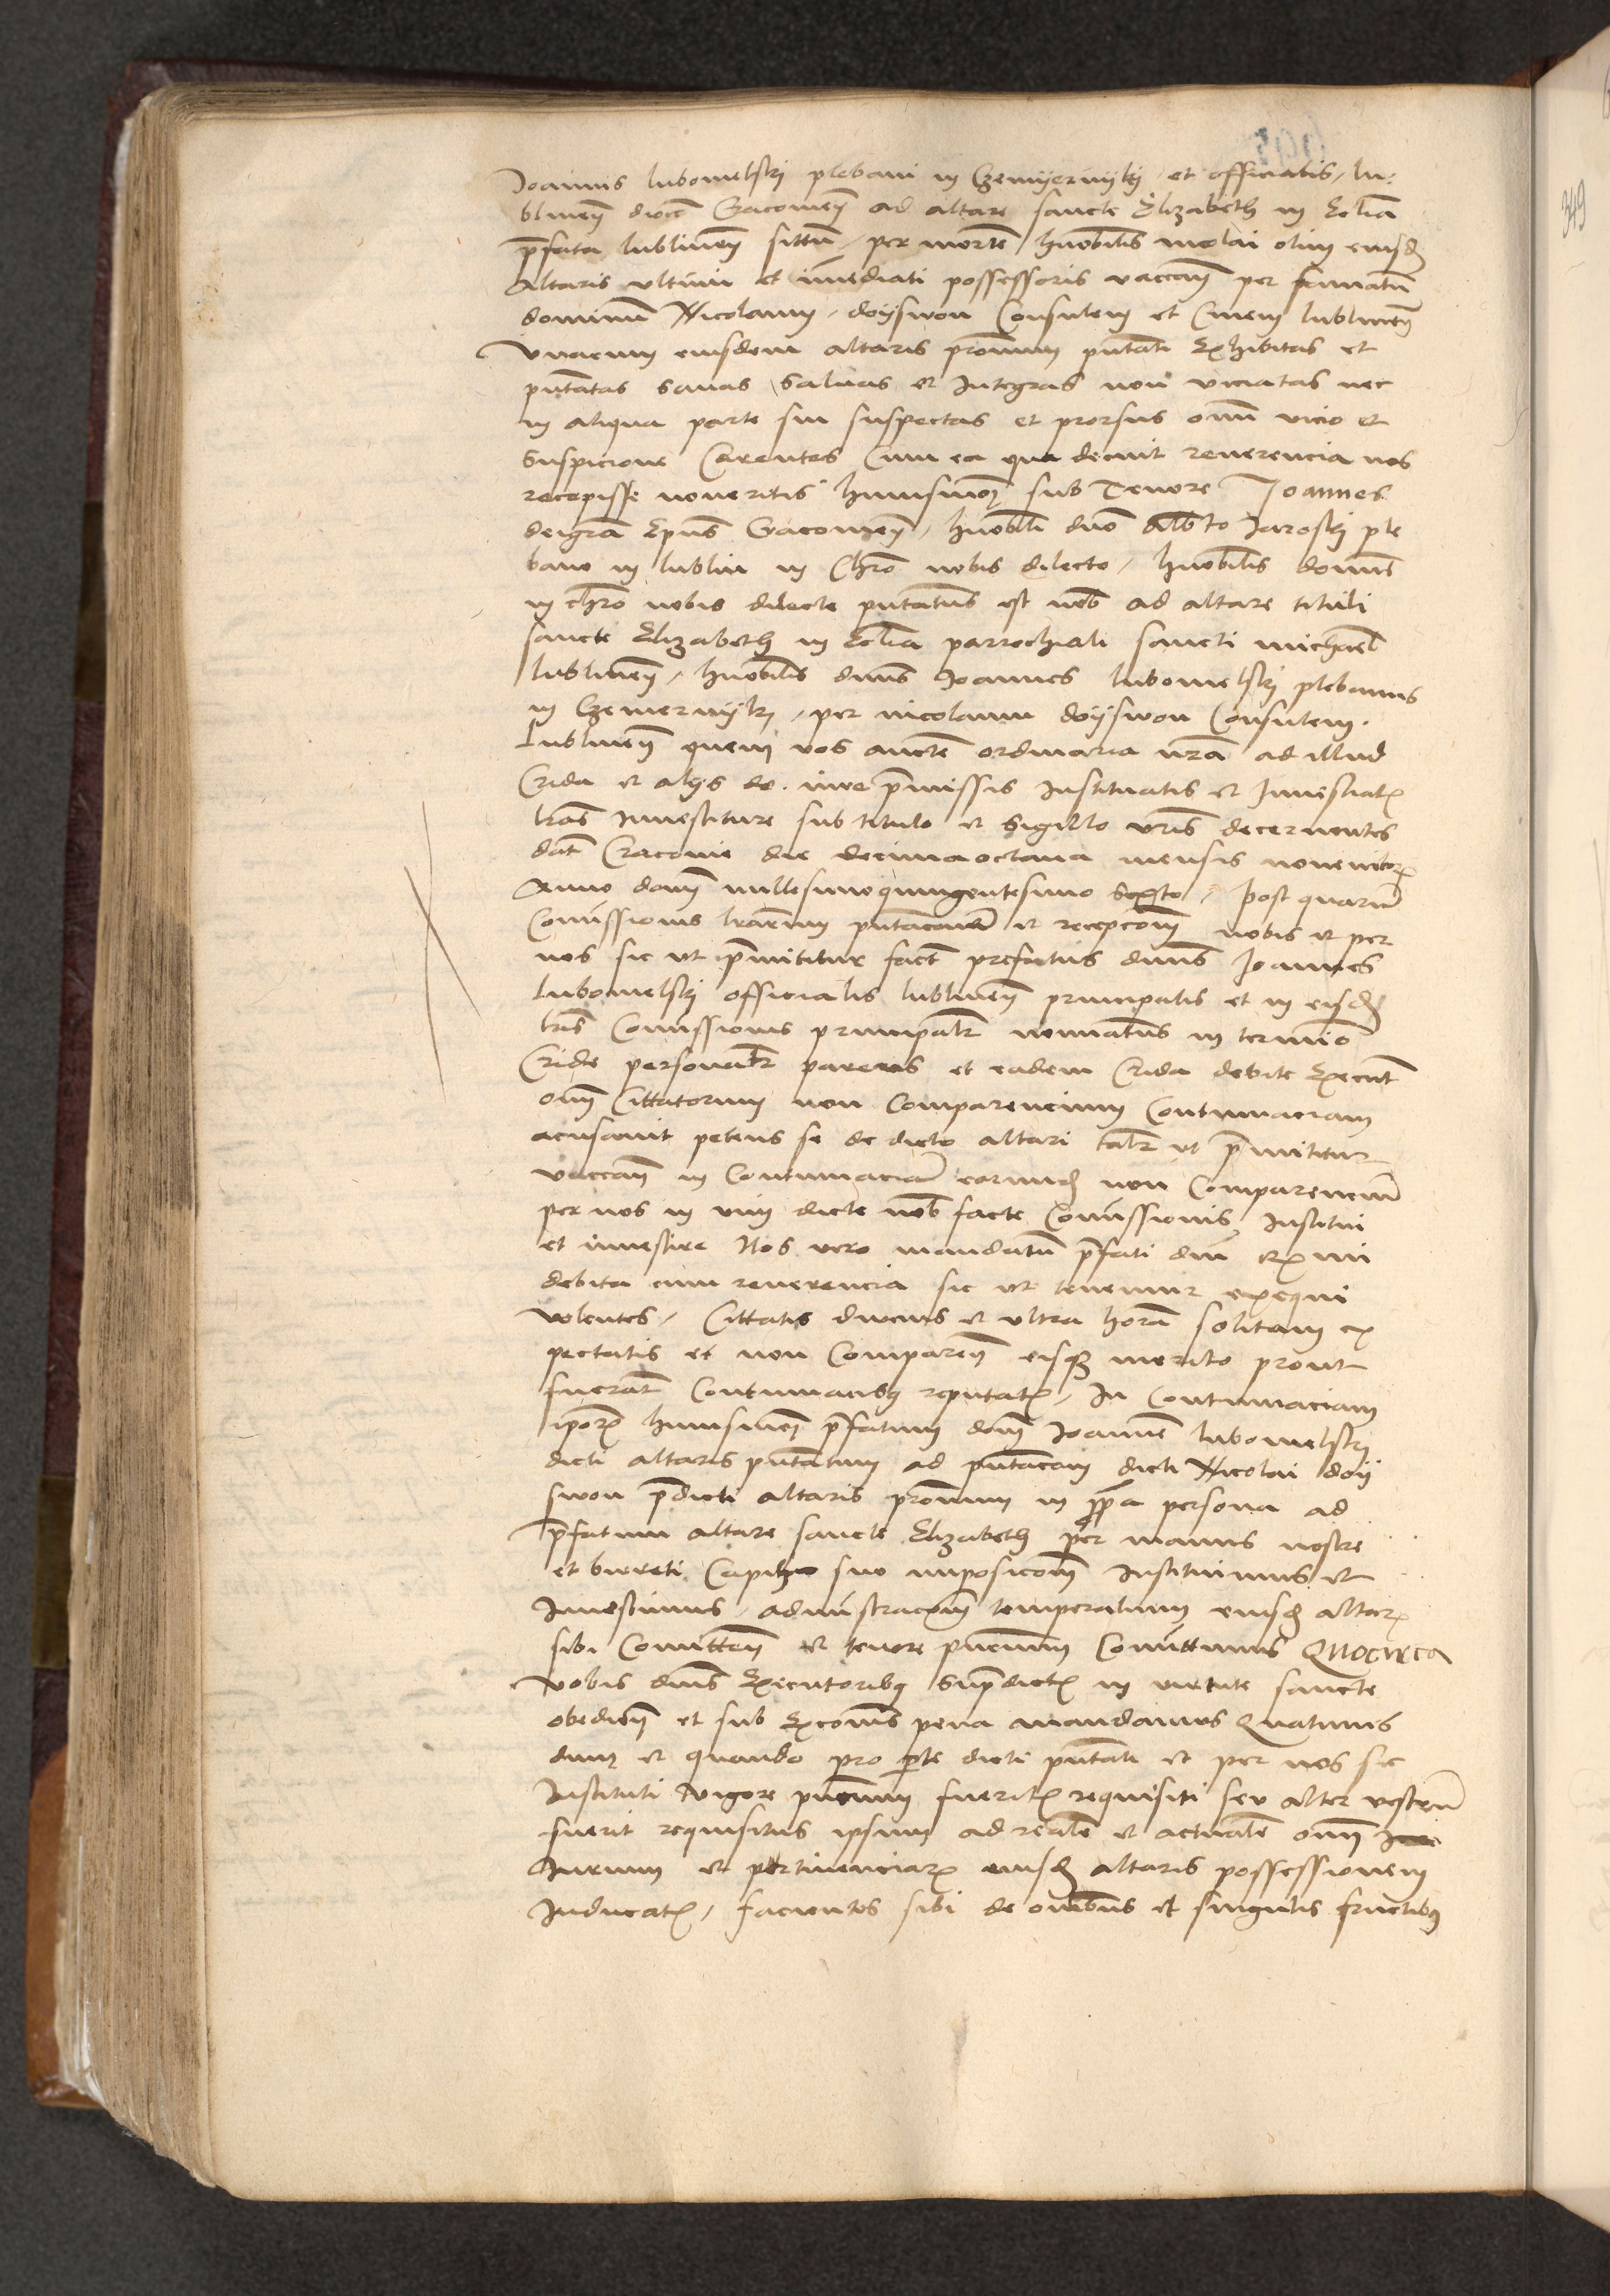 Joannis lubomelski plebani in Czemyernyky et officialis lu-
blineñ dioc̃ Cracovieñ ad altare sancte Elizabeth in Ecl̃ia
p̃fata lublineñ sittũ / per mortẽ hñobilis nicolai olim eiusd̃
altaris ultimi et im̃ediati possessoris vaccañ per famatũ
dominũ Nicolaum / doyswon Consulem et Civem lublineñ
Unacum eiusdem altaris pr̃onum pñtati Exhibitas et
pñtatas sanas salvas et Integras non viciatas nec
in aliqua parte sui suspectas et prorsus om̃i vicio et
suspicione Carentes Cum ea qua decuit reverencia nos
recepisse noveritis huiusmõi sub Tenore Joannes
dei gr̃a Ep̃us Cracovieñ / hñobili dño Alb̃to Jaroski ple
bano in lublin in Chr̃o nobis dilecto / hñobilis domñe
in chr̃o nobis dilecte pñtatus est nob̃ ad altare tituli
sancte Elizabeth in Ecl̃ia parrochiali sancti michael̃
lublineñ / hñobilis dñus Joannes lubomelski plebanus
in Czemernyky / per nicolaum doyswon Consulem
lublineñ quem vos aucte͂ ordinaria nr̃a ad illud
Crida et alijs de iure p̃missis Instituatis et Investiat̃
lr̃as Investiture sub titulo et sigillo vr̃is decernentes
dat̃ Cracovie die decimaoctava mensis novembr̃
Anno dom̃ millesimoquingentesimo Sexto / Post quarũ
Com̃issionis lr̃arum pñtacionẽ et recepcoñem nobis et per
nos sic ut p̃mittitur fact̃ prefatus dñus Joannes
lubomelski officialis lublineñ principalis et in eisd̃
lr̃is Com̃issionis principalr̃ nominatus in termino
Cride personalr̃ parens et eadem Crida debite Execut̃
om̃ Cittatorum non Comparencium Contumaciam
acusavit petens se de dicto altari tal̃r ut p̃mittitur
vaccañ in Contumaciã eorumd̃ non Comparenciũ
per nos in vim dicte nob̃ facte Com̃issionis Institui
et investire Nos vero mandatũ p̃fati dñi
debita cum reverencia sic ut tenemur exequi
volentes / Cittatis diucius et ultra horã solitam ex
pectatis et non Compareñ eisq̃ merito prout
fuerat̃ Contumacibus reputat̃ / In Contumaciam
ip̃or̃ huiusmõi p̃fatum dom̃ Joannẽ lubomelski
dicti altaris pñtatum ad pñtacõem dicti Nicolai doy
swon p̃dicti altaris pr̃onum in p̃p̃a persona ad
p̃fatum altare sancte Elizabeth per manus nostre
et birreti Capiti suo imposicoñem Instituimus et
Investimus / administracoñem temporalium eiusd̃ altar̃
sibi Com̃itteñ et tenore pñcium Com̃ittimus Quocirca
vobis dñis Executoribus Supradict̃ in virtute sancte
obedieñ et sub Excom̃is pena mandamus Quatinus
dum et quando pro p̃te dicti pñtati et per nos sic
Instituti vigore pñcium fuerit̃ requisiti seu alter vestrũ
fuerit requisitus ipsum ad realẽ et actualẽ om̃
Iurium et pertinenciar̃ eiusd̃ altaris possessionem
Inducat̃ / facientes sibi de om̃ibus et singulis fructibus
349